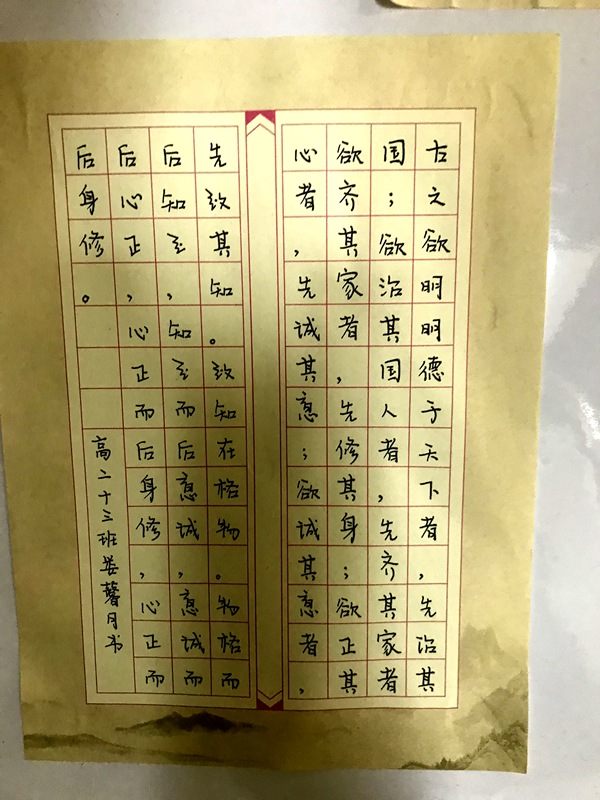 古之欲明明德于天下者，先治其
国；欲治其国人者，先齐其家者
欲齐其家者，先修其身；欲正其
心者，先诚其意；欲诚其意者，
先致其知。致知在格物。物格而
后知至，知至而后意诚，意诚而
后心正，心正而后身修，心正而
后身修。
高二十三班馨月书